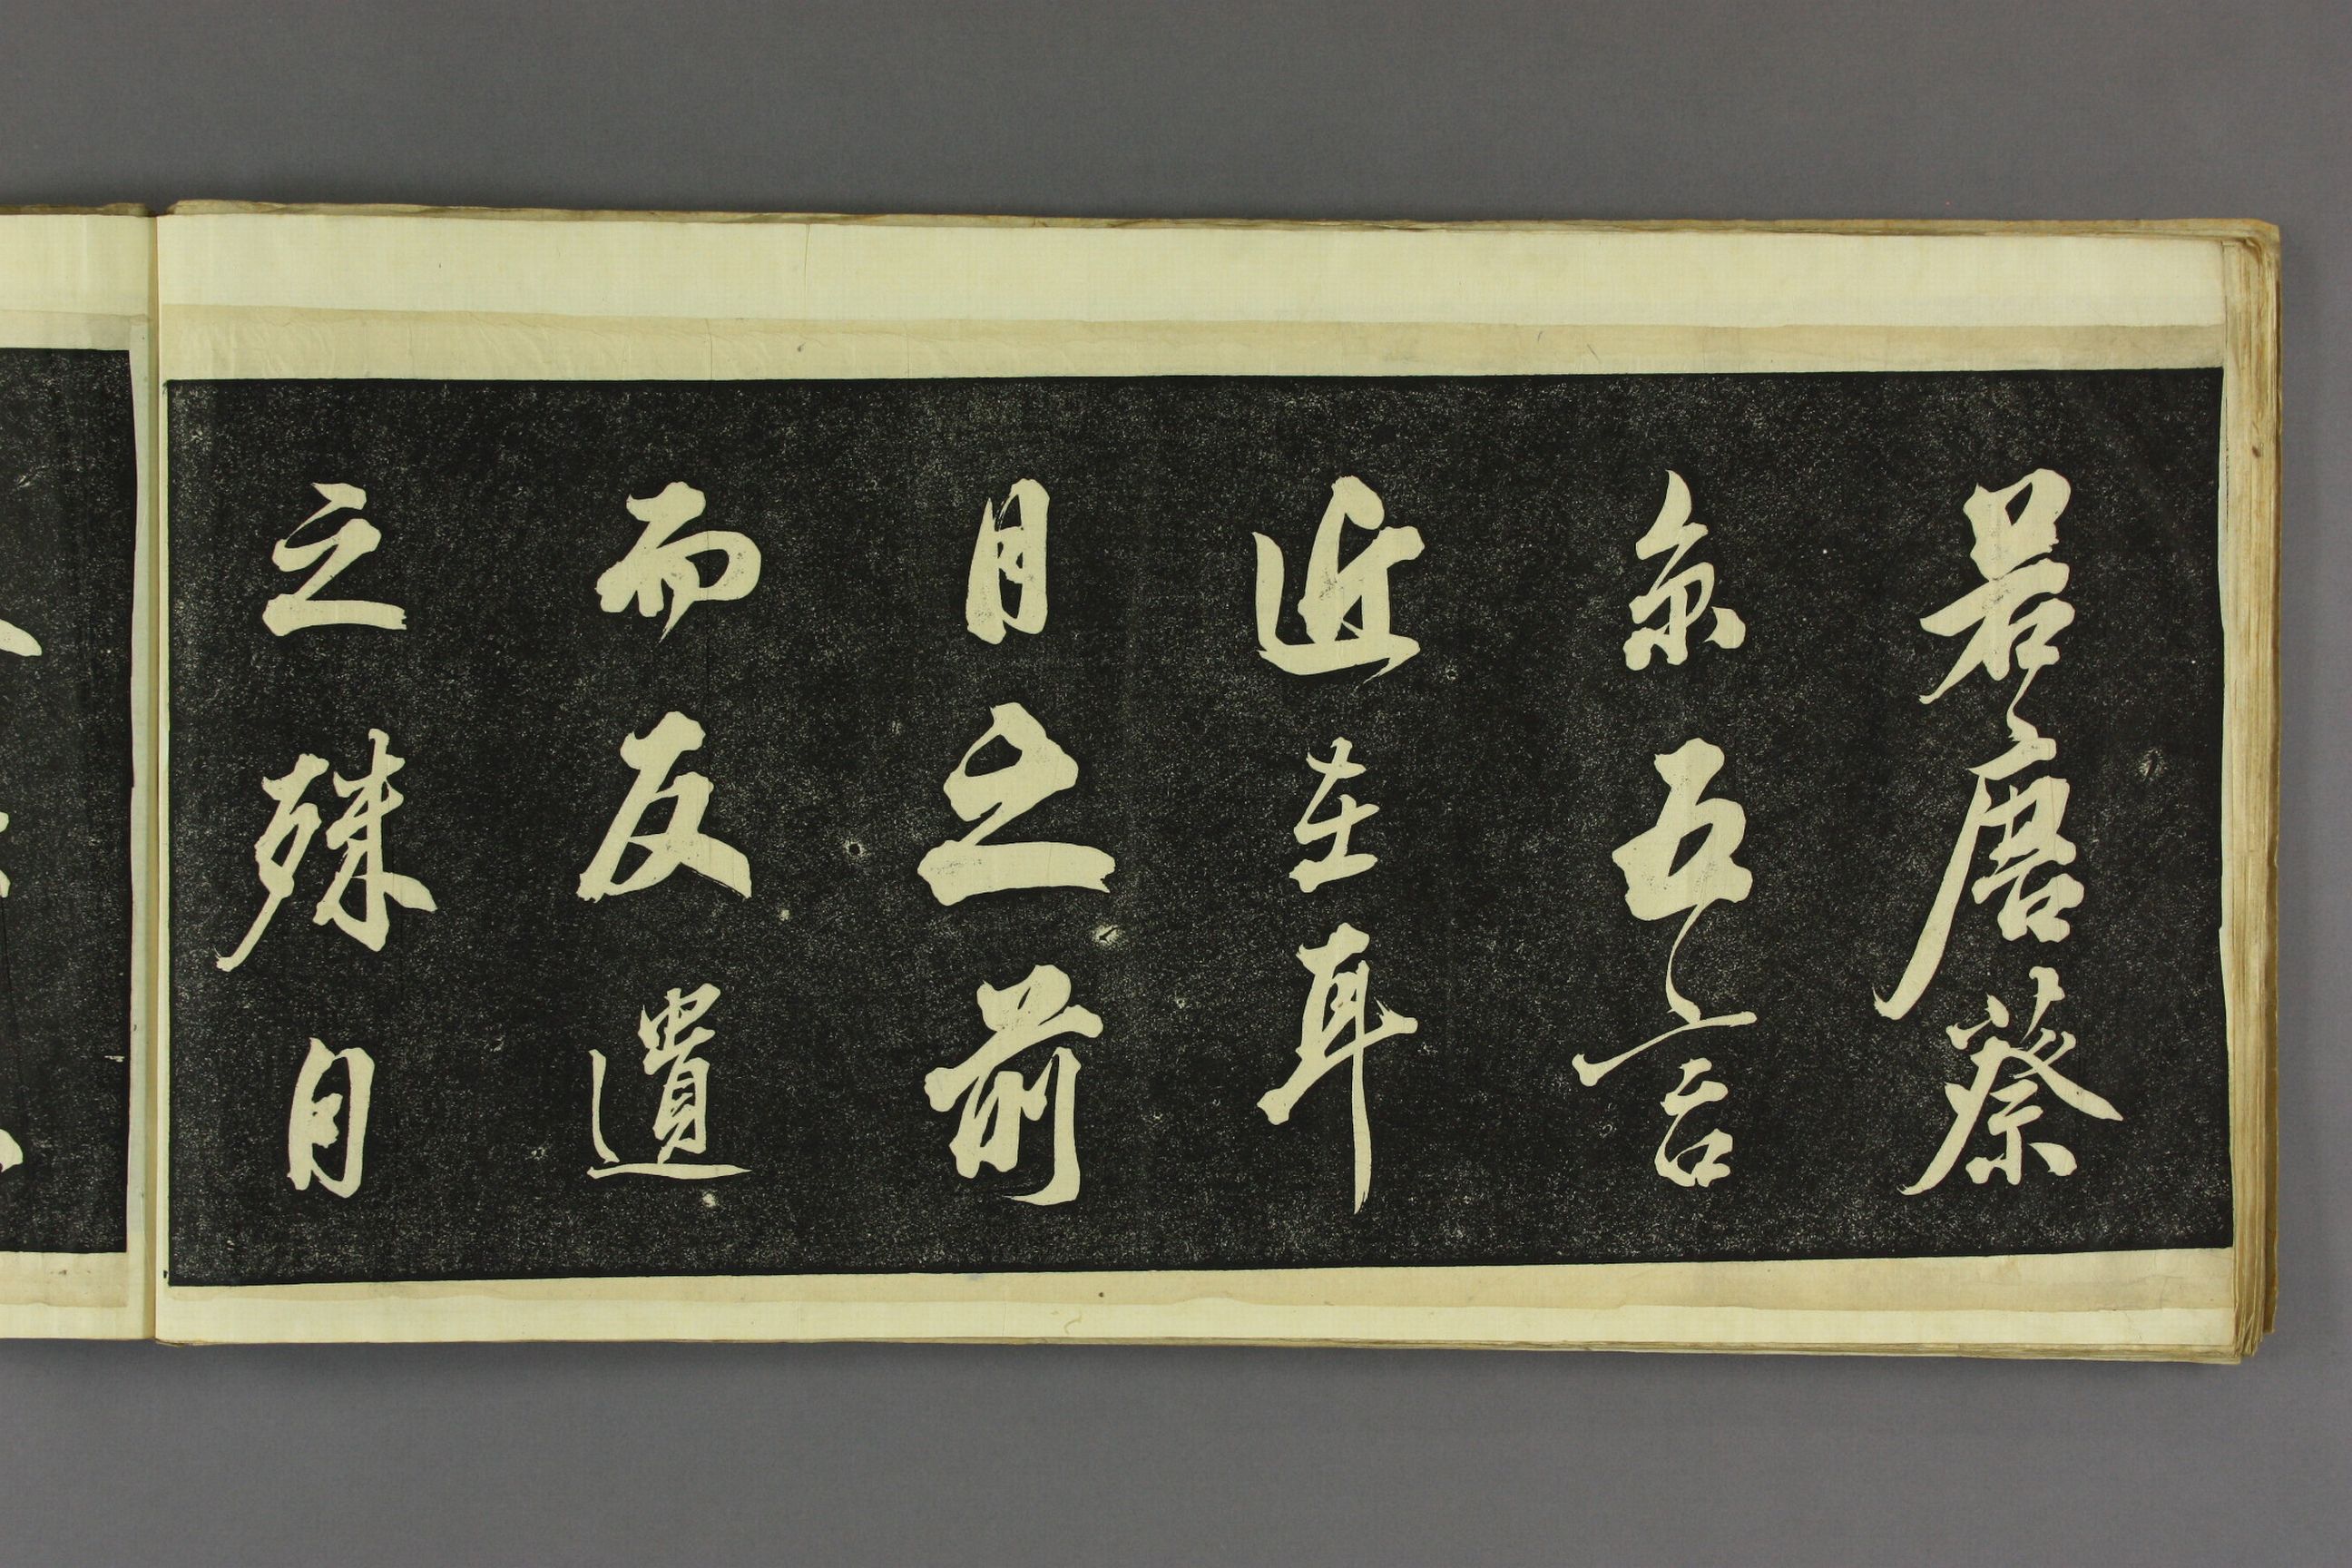 若唐蔡
京五言
近在耳
目之前
而反遺
之殊自